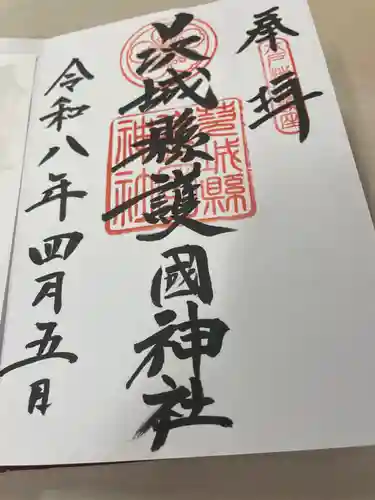 奉拝
茨城縣護國神社
茨城縣
神社
令和八年四月五日